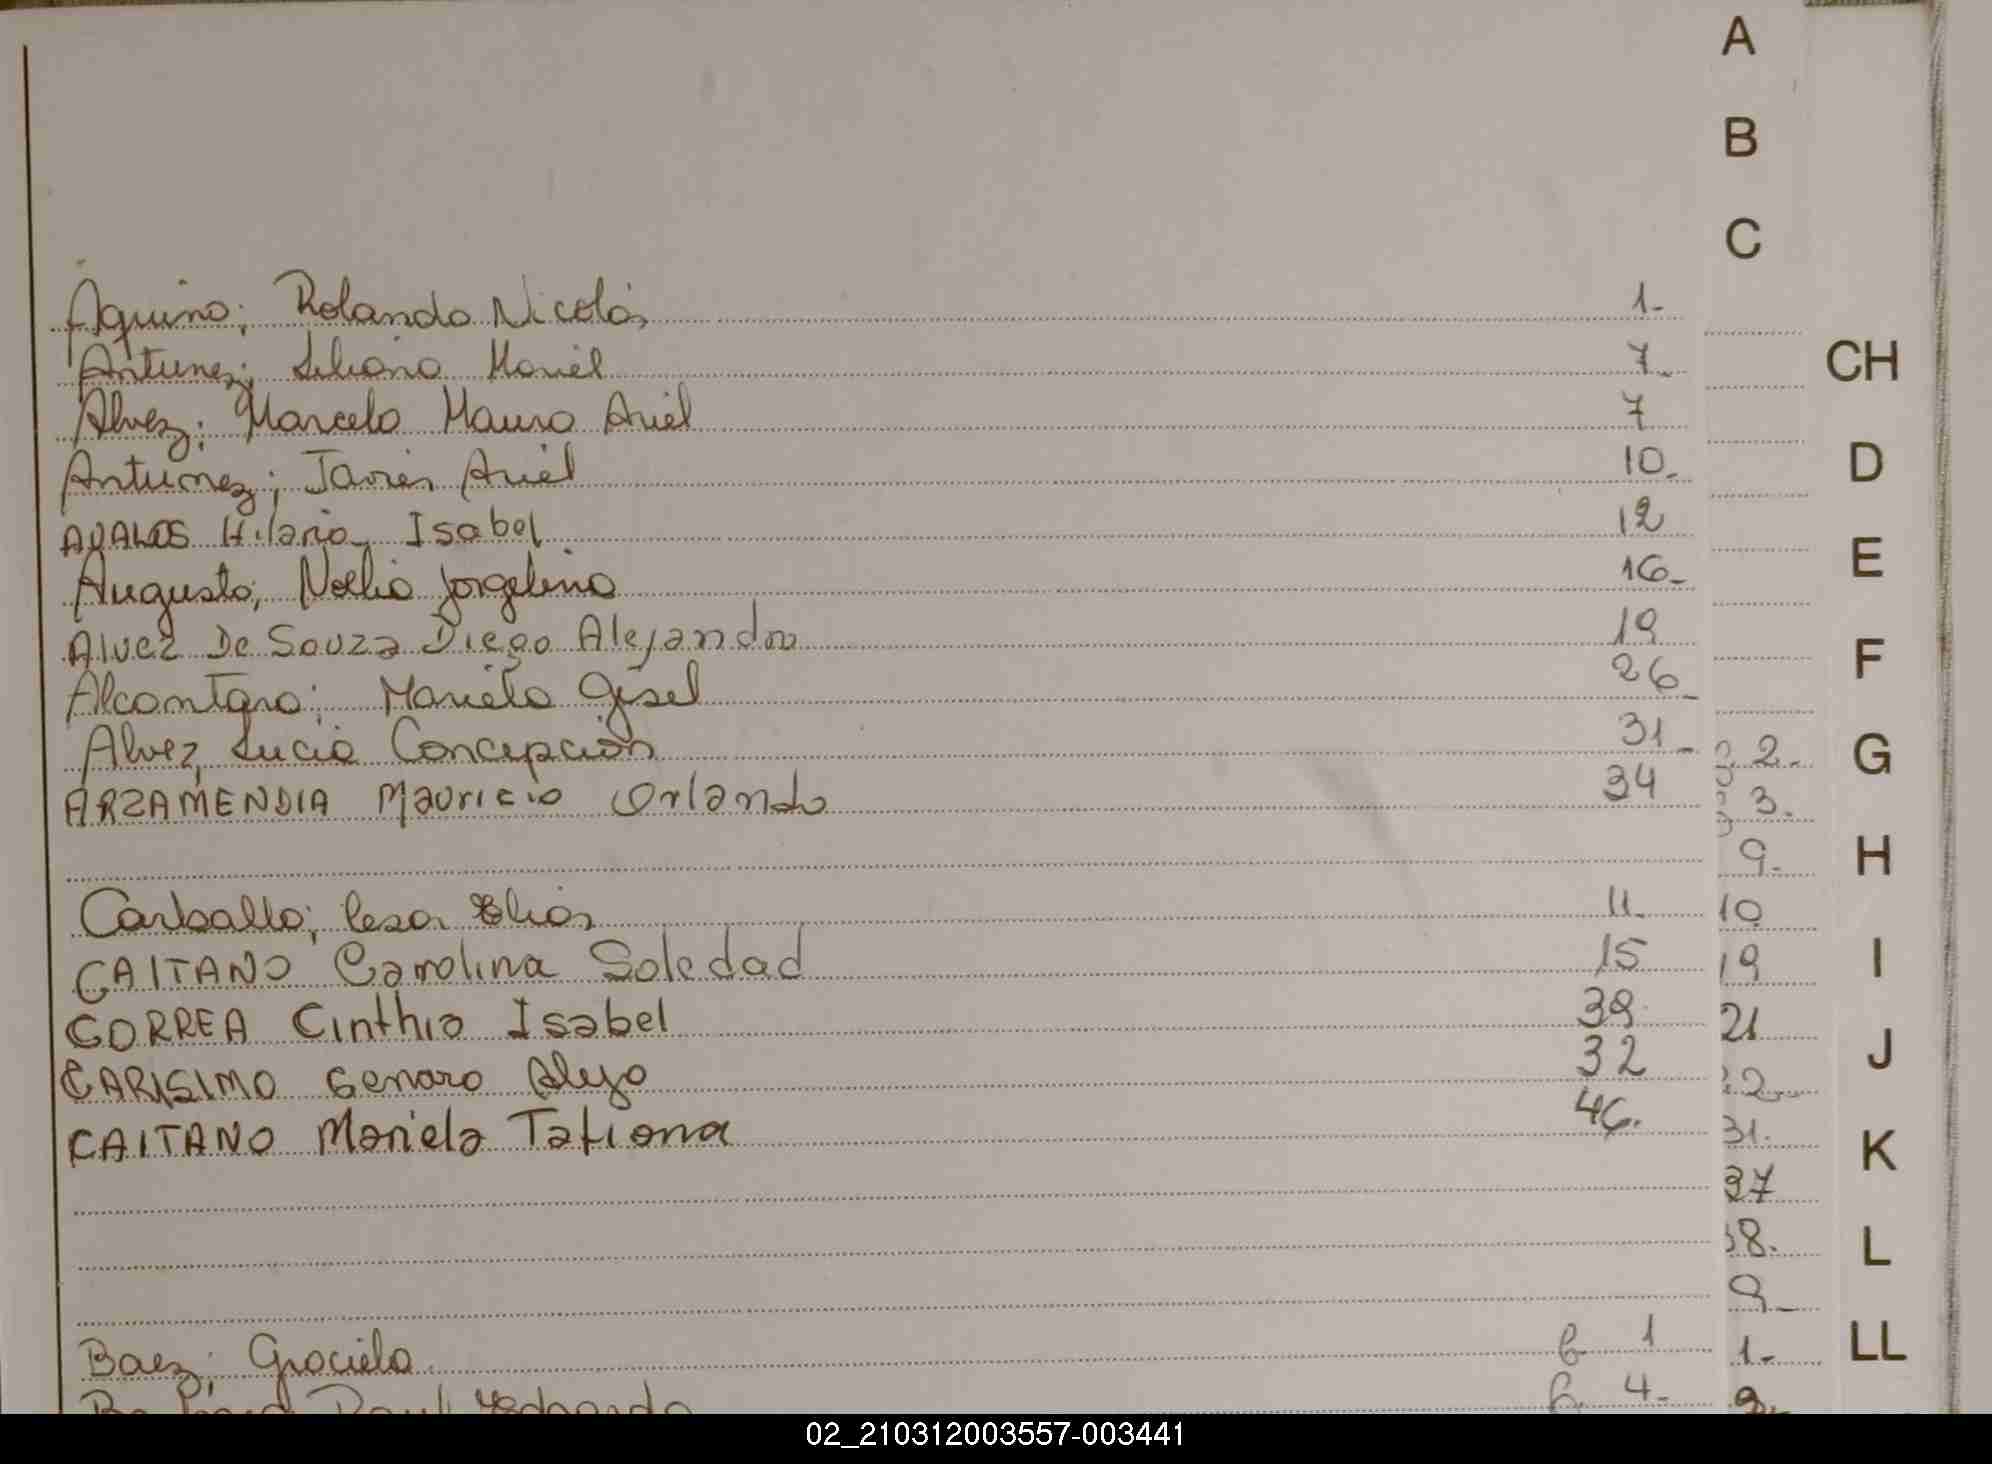 A
B
C
Aquino; Rolando Nicolás 1.-
Antunez; Liliana Mariel 7.-
Alvez; Marcelo Mauro Ariel 7
Antunez; Javier Ariel 10.-
AVALOS Hilaria Isabel 12
Augusto; Noelia Jorgelina 16.-
Alvez De Souza Diego Alejandro 19
Alcantara; Mariela Gisel 26.-
Alvez, Lucia Concepción 31.-
ARZAMENDIA Mauricio Orlando 34
Carballo; Cesar Elias 11.-
CAITANO Carolina Soledad 15
CORREA Cinthia Isabel 39
CARISIMO Genaro Alejo 32
CAITANO Mariela Tatiana 46.
Baez; Graciela 6 1
Raul Eduardo 6 4.-
2.-
3.-
9.-
10
19
21
22
31.
37
38.
9.-
1.-
CH
D
E
F
G
H
I
J
K
L
LL
02_210312003557-003441